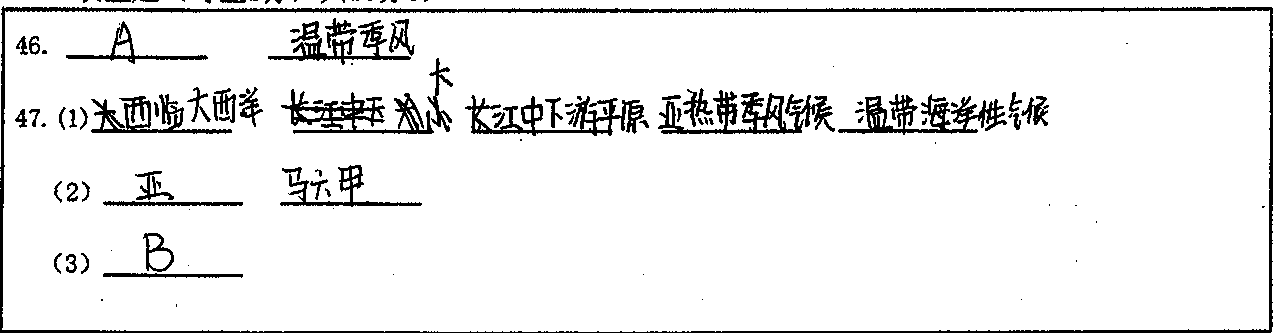 46. A 温带季风
47. (1) 西临大西洋 大 长江中下游平原 亚热带季风气候 温带海洋性气候
(2) 亚 马六甲
(3) B